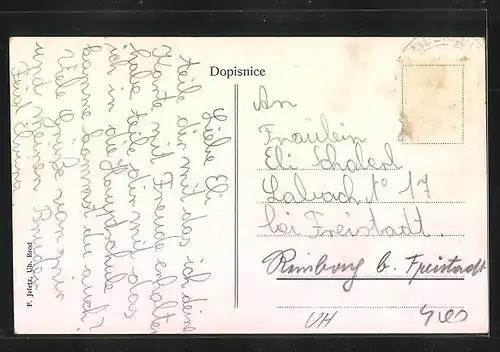 Dopisnice
Liebe Eli
teile dir mit das ich deine
Karte mit Freude erhalten
habe teile dir mit das
ich in die Hauptschule
komme kommst du auch?
Viele Grüße von mir
und meinen Bruder
An
Fräulein
Eli
Labach No 17
bei Freistadt.
b. Freistadt
F. Jeletz, Uh. Brod